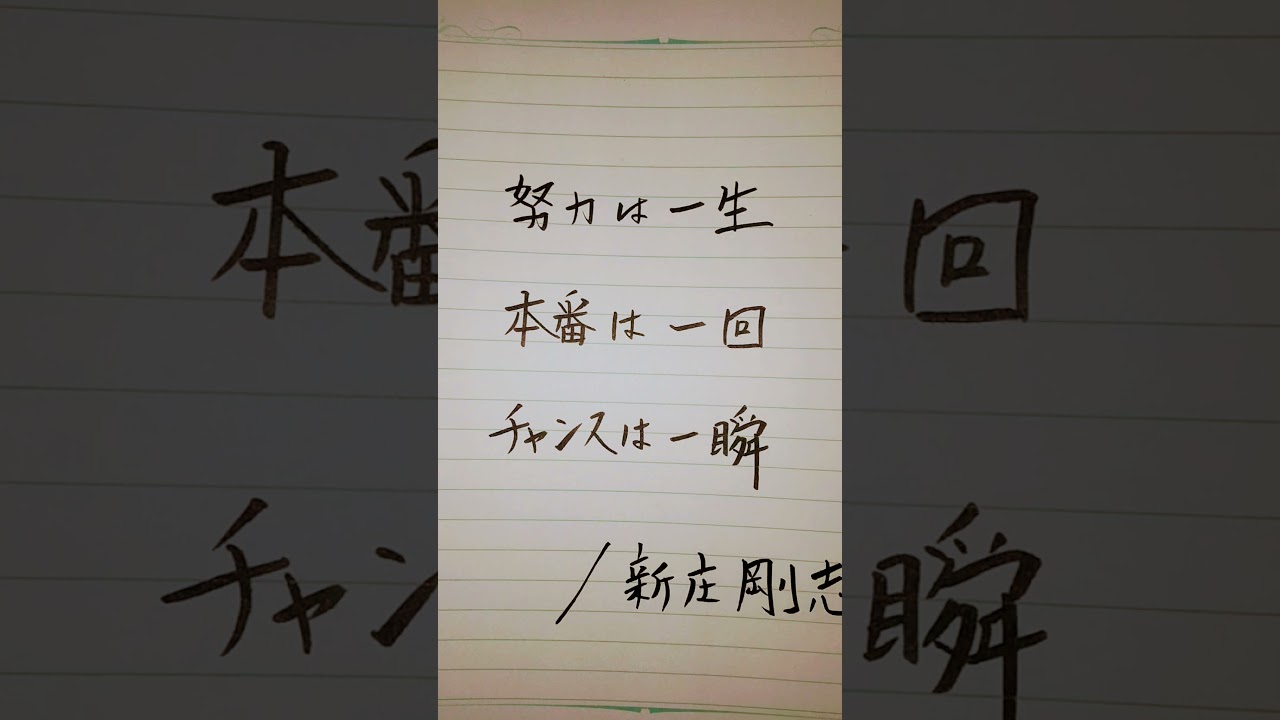 努力は一生
本番は一回
チャンスは一瞬
/新庄剛志